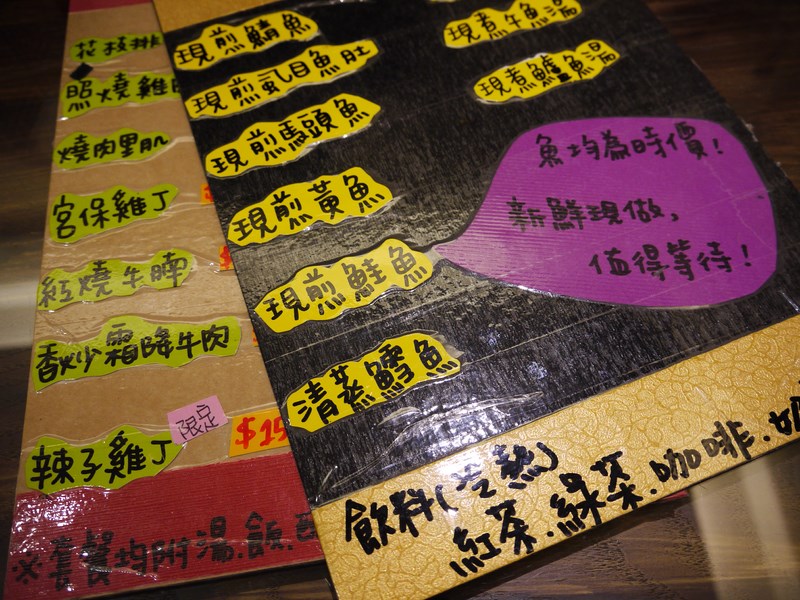 花枝排
照燒雞
燒肉里肌
宮保雞丁
紅燒牛腩
香炒霜降牛肉
辣子雞丁
限定
$15
※套餐均附湯.飯.
現煎鯖魚
現煎虱目魚肚
現煎馬頭魚
現煎黃魚
現煎鮭魚
清蒸鱈魚
現煮牛魚湯
現煮鱸魚湯
魚均為時價!
新鮮現做,
值得等待!
飲料(冷熱)
紅茶.綠茶.咖啡.奶